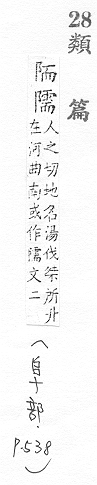 28類
篇
陑隭人之切地名湯伐桀所升
在河曲南或作隭文二
（𨸏部．
P.538）